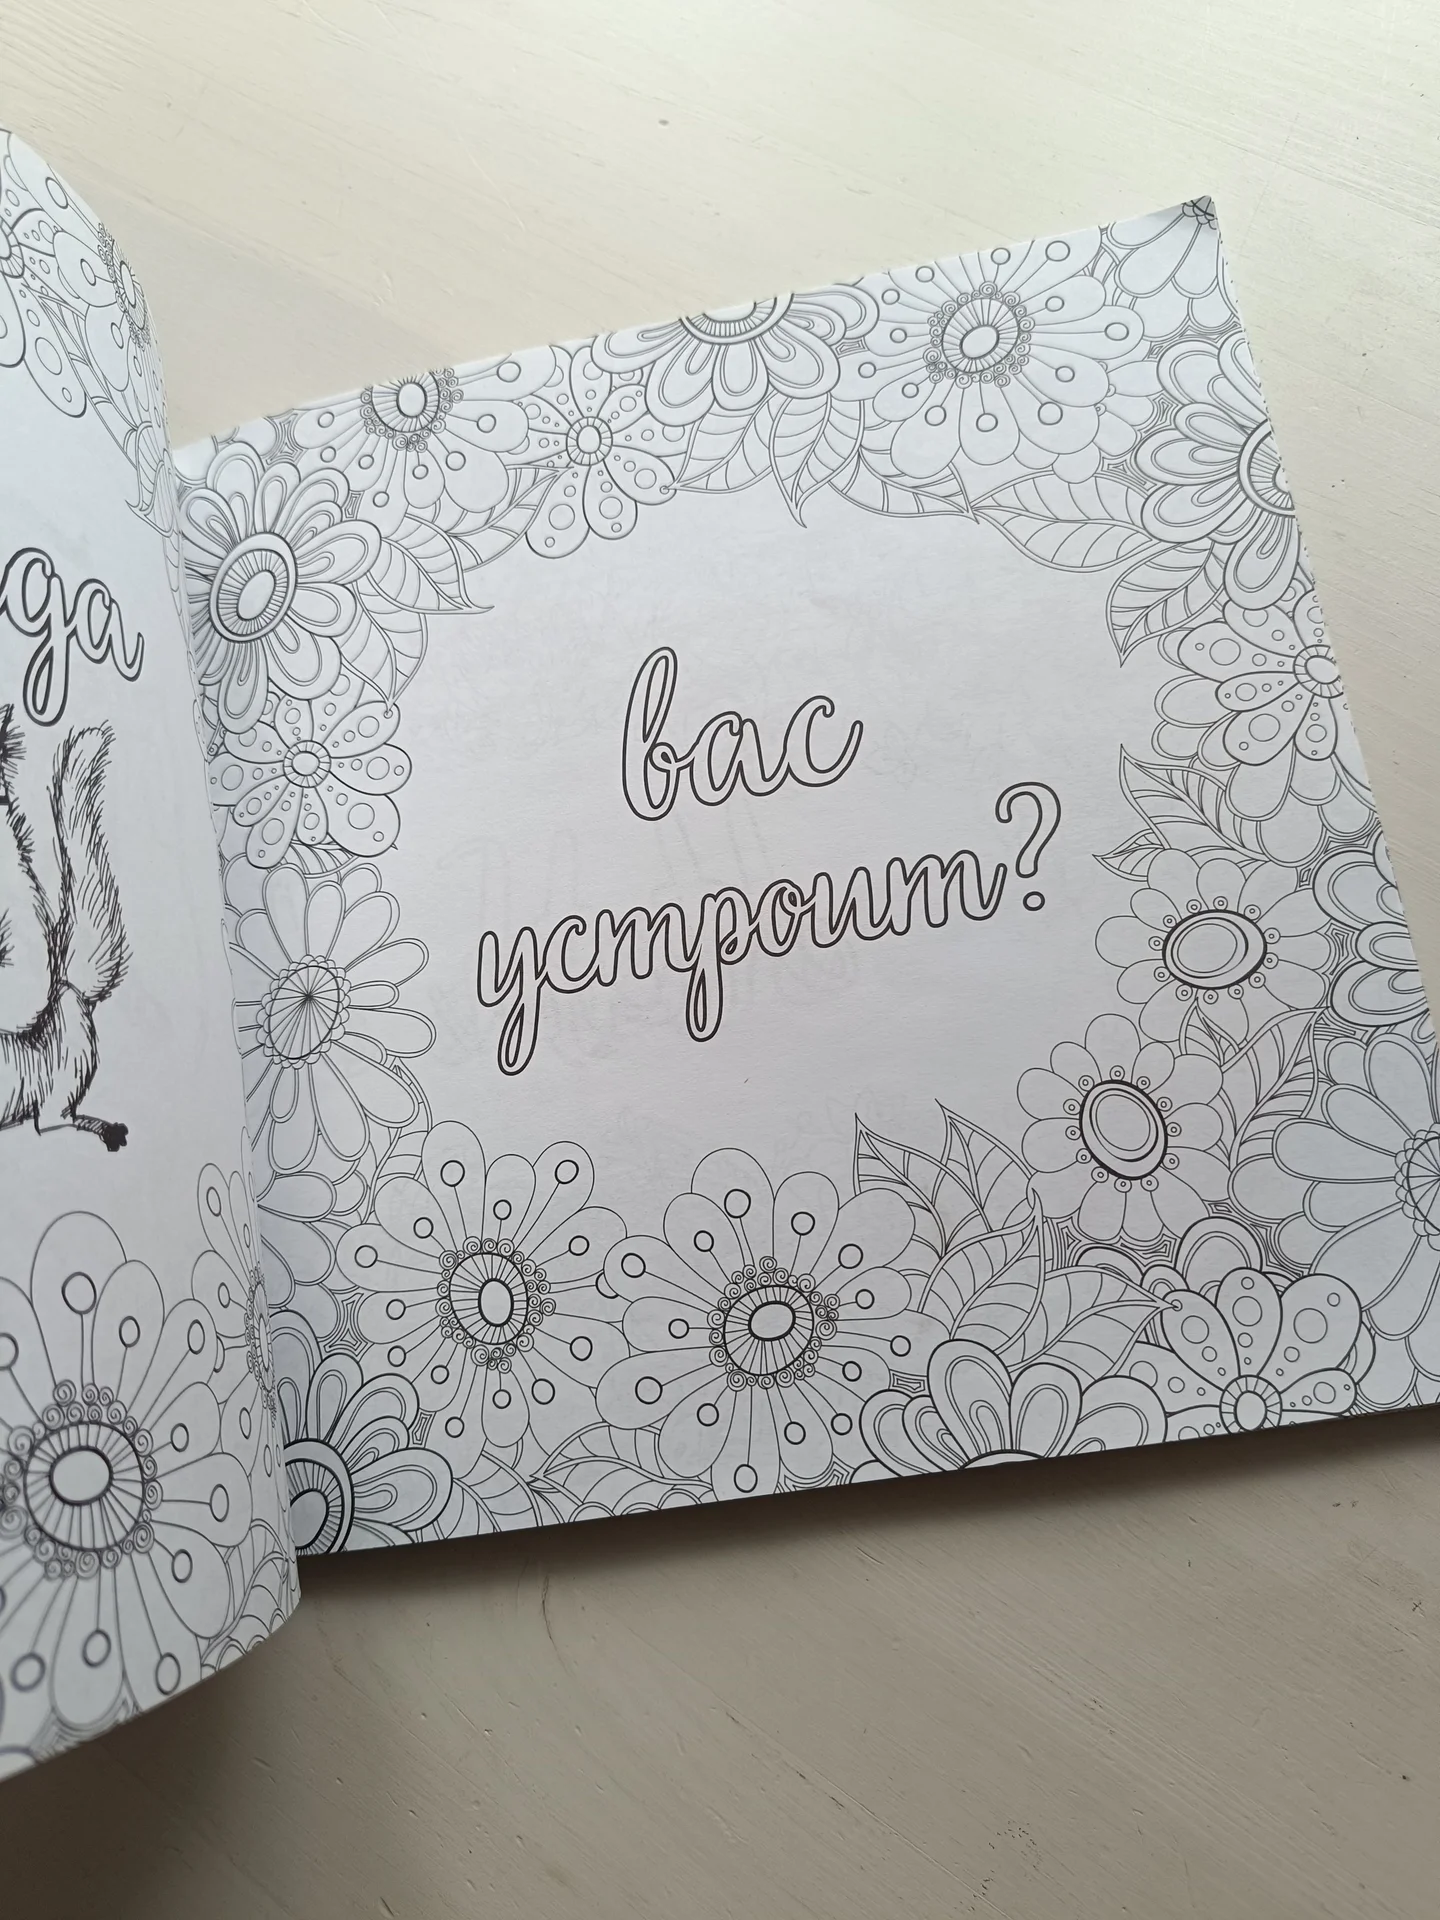 вас
устроит?